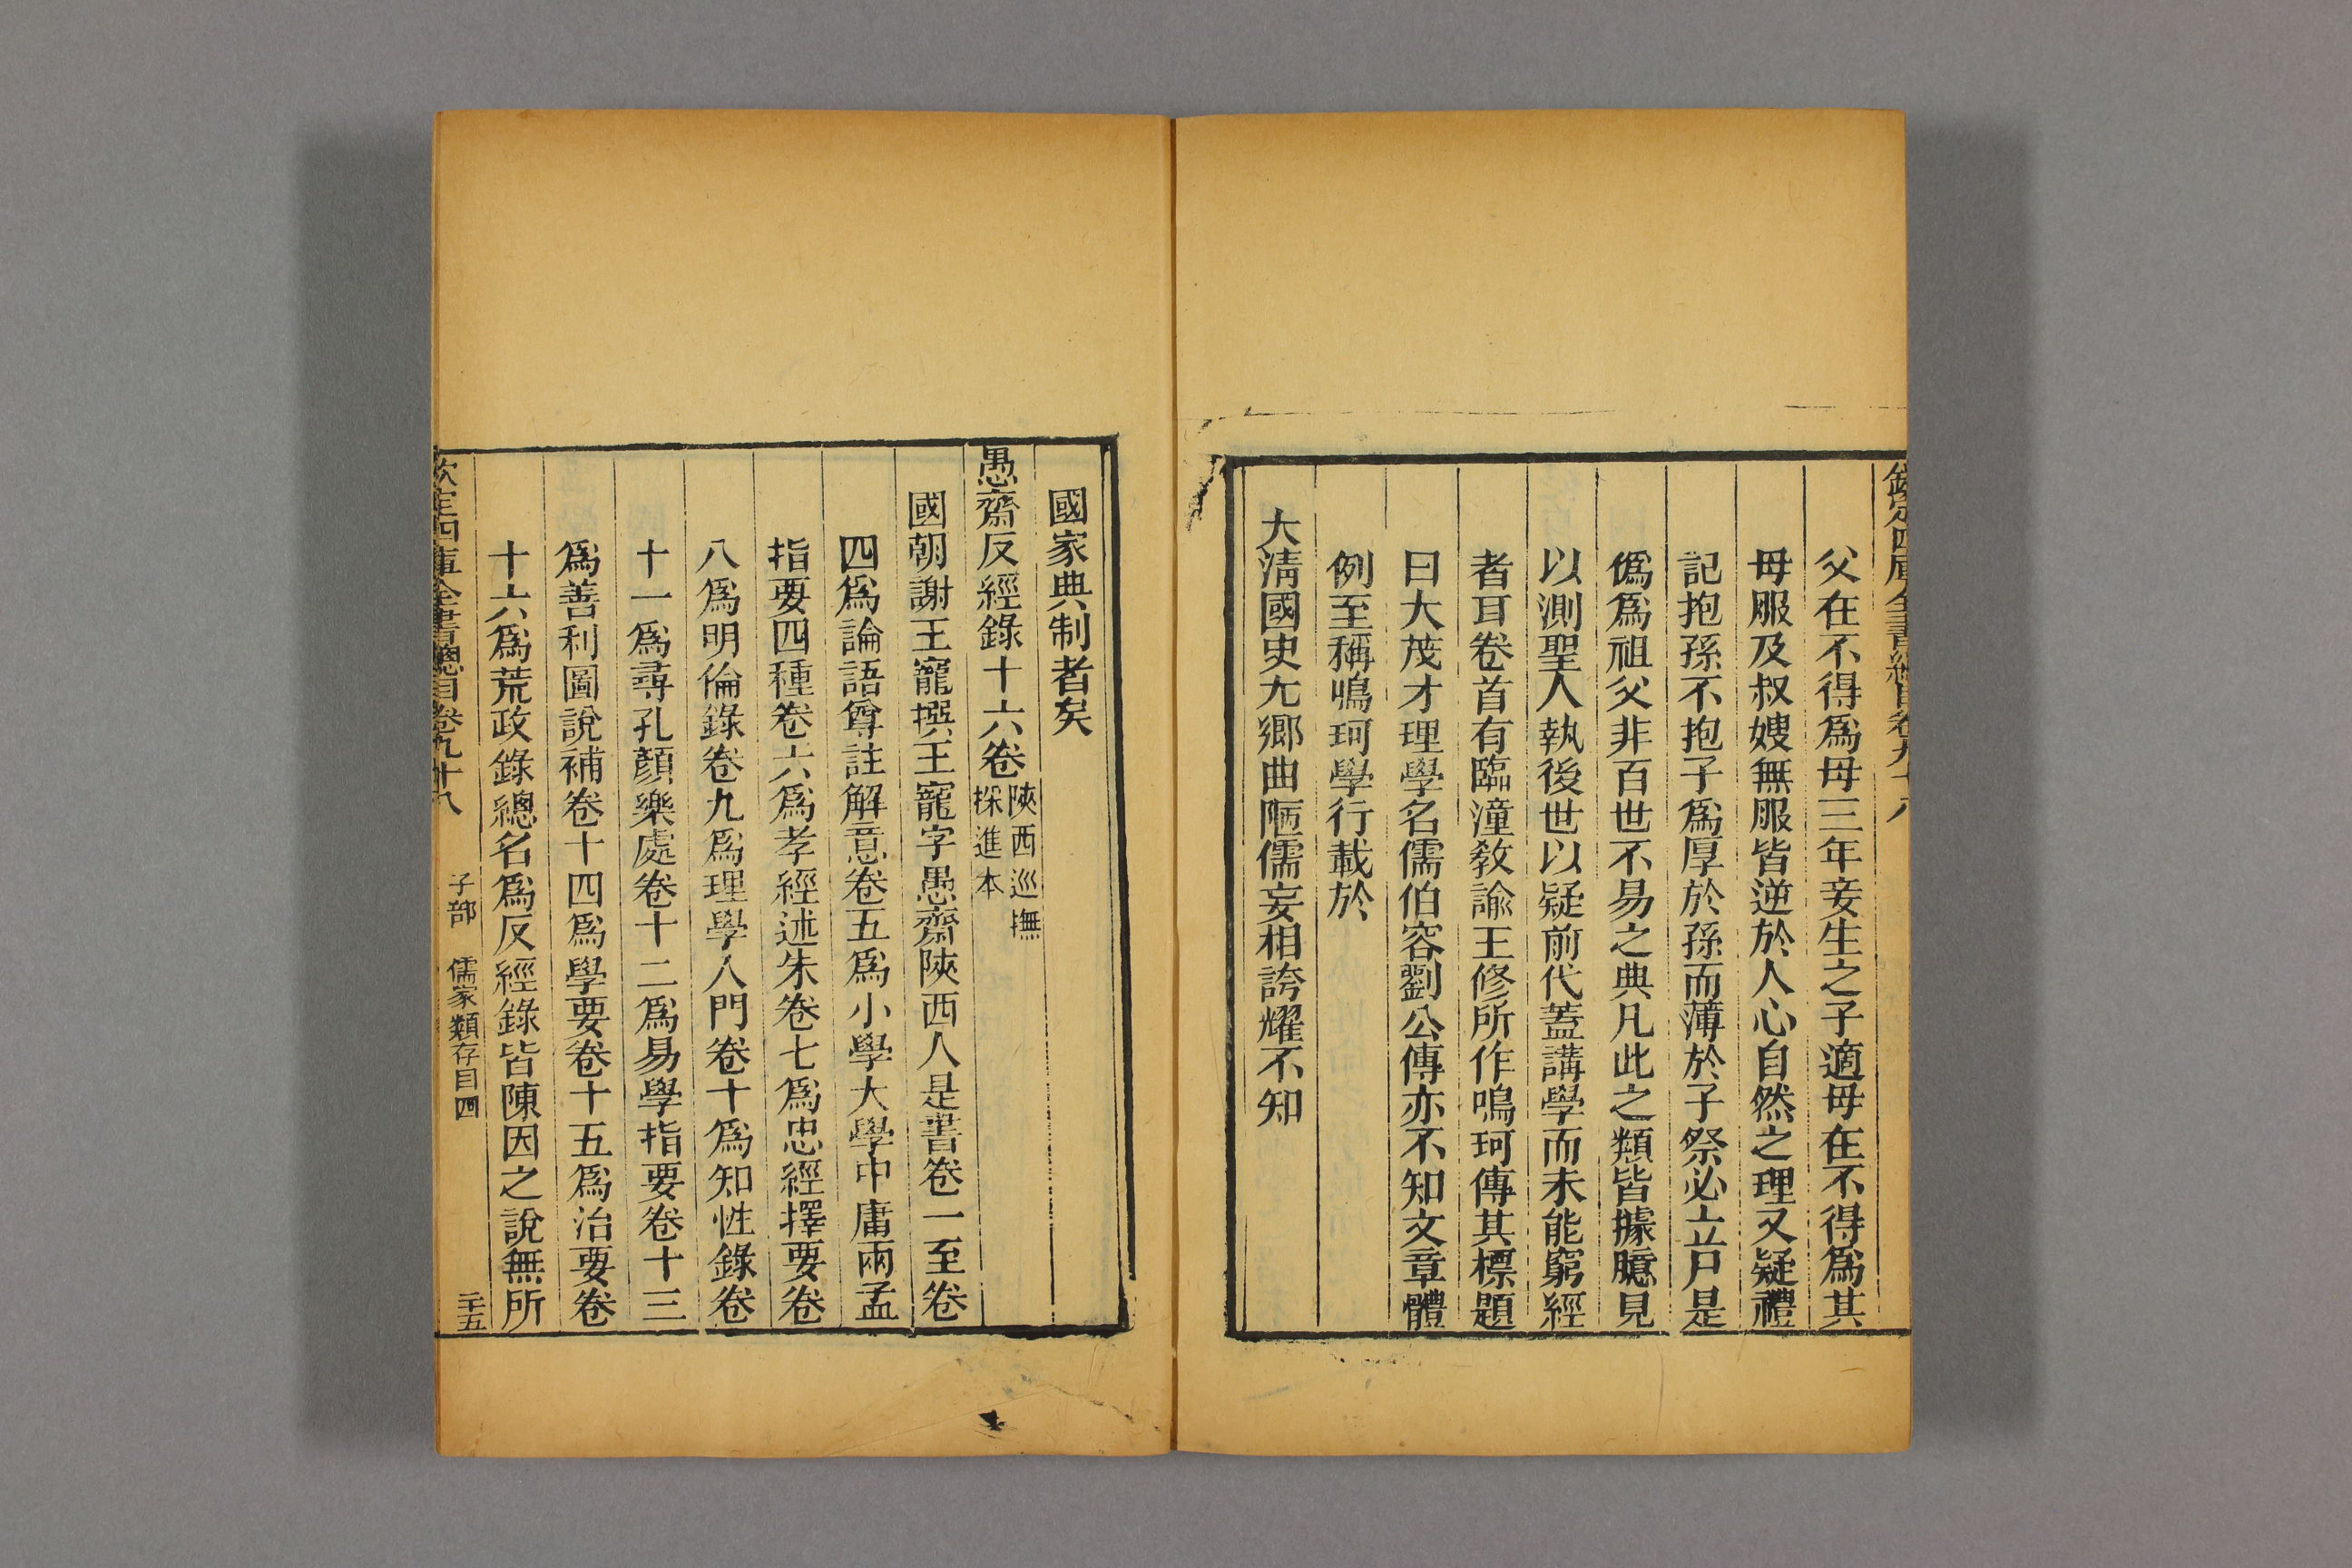 欽定四庫全書總目卷九十八
父在不得爲母三年妾生之子適母在不得爲其
母服及叔嫂無服皆逆於人心自然之理又疑禮
記抱孫不抱子爲厚於孫而薄於子祭必立尸是
僞爲祖父非百世不易之典凡此之類皆據臆見
以測聖人執後世以疑前代蓋講學而未能窮經
者耳卷首有臨潼敎諭王修所作鳴珂傳其標題
曰大茂才理學名儒伯容劉公傳亦不知文章體
例至稱鳴珂學行載於
大淸國史尤鄉曲陋儒妄相誇耀不知
國家典制者矣
愚齋反經錄十六卷陝西巡撫
採進本
國朝謝王寵撰王寵字愚齋陝西人是書卷一至卷
四爲論語尊註解意卷五爲小學大學中庸兩孟
指要四種卷六爲孝經述朱卷七爲忠經擇要卷
八爲明倫錄卷九爲理學入門卷十爲知性錄卷
十一爲尋孔顔樂處卷十二爲易學指要卷十三
爲善利圖說補卷十四爲學要卷十五爲治要卷
十六爲荒政錄總名爲反經錄皆陳因之說無所
欽定四庫全書總目卷九十八 子部 儒家類存目四 三五